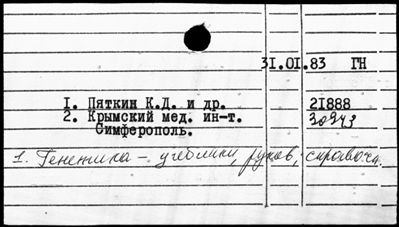 31.01.83 ГН
1. Пяткин К.Д. и др. 21888
2. Крымский мед. ин-т. 30943
Симферополь.
1. Генетика – учебники, руков, справочн.